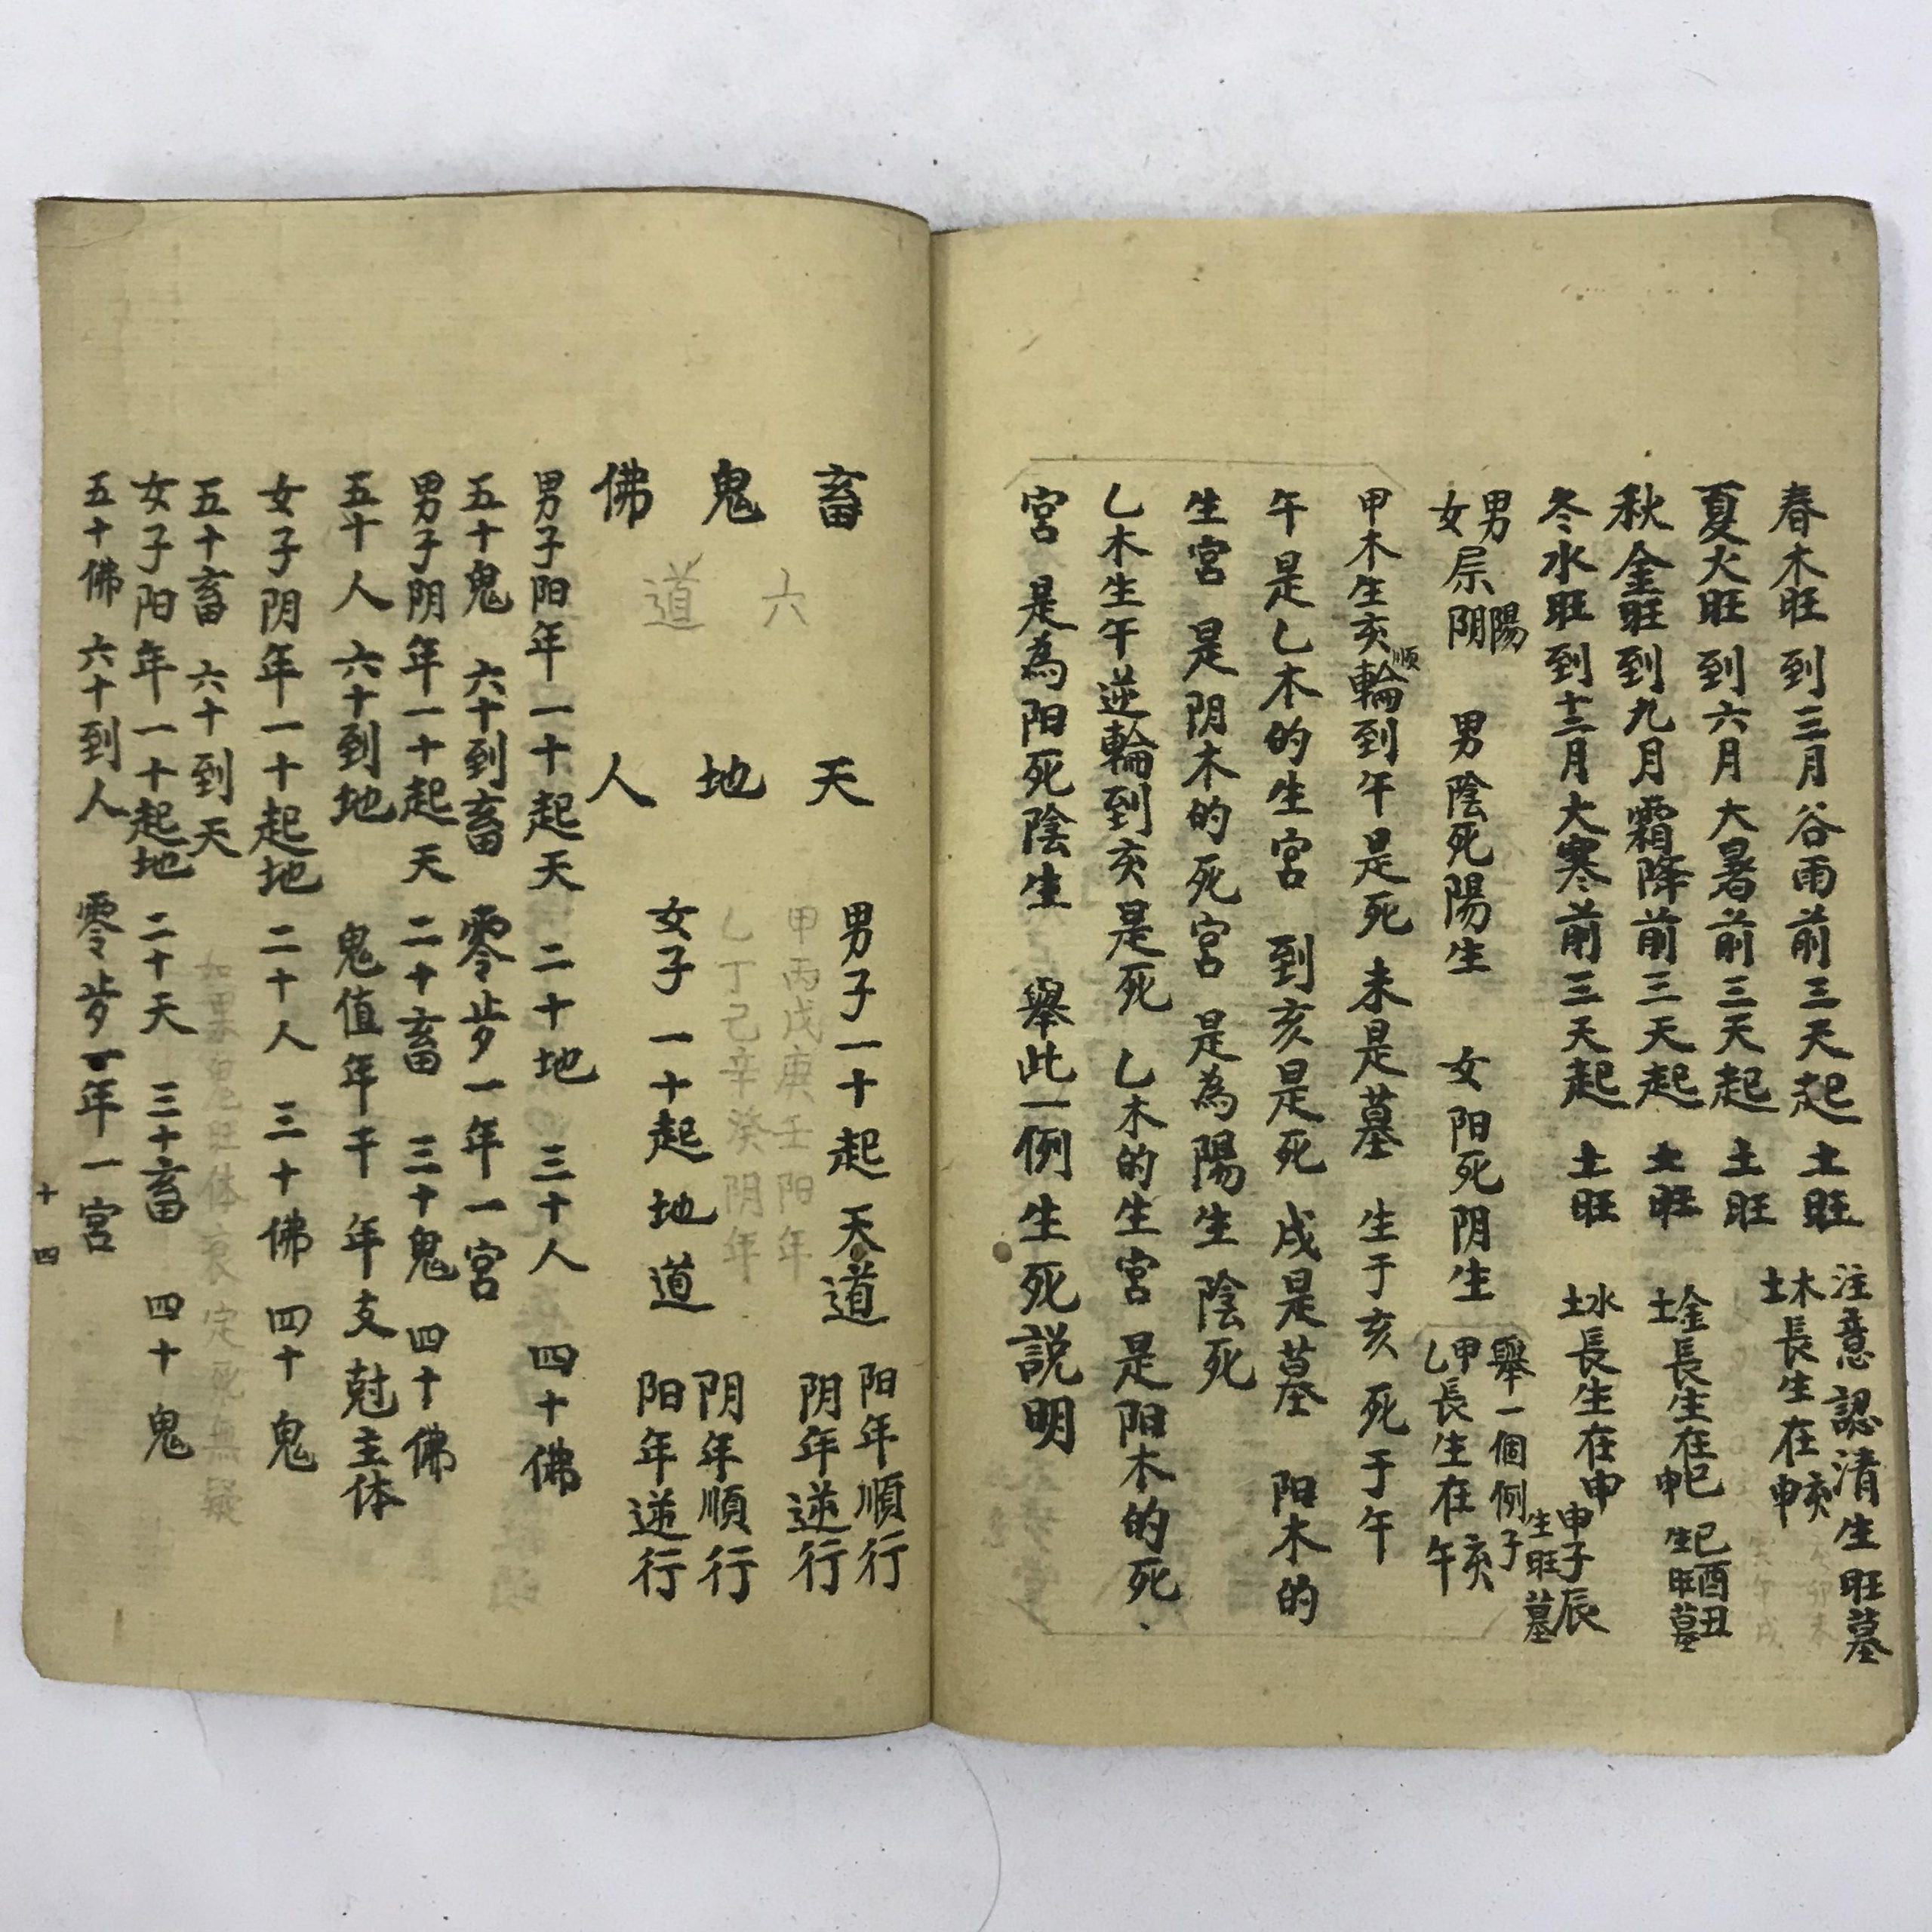 春木旺 到三月谷雨前三天起 土旺 注意認清生旺墓
木土長生在亥申
夏火旺 到六月大暑前三天起 土旺
秋金旺 到九月霜降前三天起 土旺 金土長生在巳申 巳酉丑 生旺墓
冬水旺 到十二月大寒前三天起 土旺 水土長生在申 申子辰 生旺墓
男女屬陽阴 男陰死陽生 女阳死阴生 舉一個例子
甲乙長生在亥午
甲木生亥順輪到午是死 未是墓 生于亥 死于午
午是乙木的生宮 到亥是死 戌是墓 阳木的
生宮 是阴木的死宮 是為陽生 陰死
乙木生午逆輪到亥是死 乙木的生宮 是阳木的死
宮 是為阳死陰生 舉此一例 生死說明
畜 天 男子一十起天道 阳年順行 阴年逆行
六道
甲丙戊庚壬阳年
乙丁己辛癸阴年
鬼 地
女子一十起地道 阴年順行 阳年逆行
佛 人
男子阳年一十起天 二十地 三十人 四十佛
五十鬼 六十到畜 零步一年一宮
男子阴年一十起天 二十畜 三十鬼 四十佛
五十人 六十到地 鬼值年干 年支尅主体
女子阴年一十起地 二十人 三十佛 四十鬼
五十畜 六十到天
女子阳年一十起地 二十天 三十畜 四十鬼
五十佛 六十到人 零步一年一宮
十四